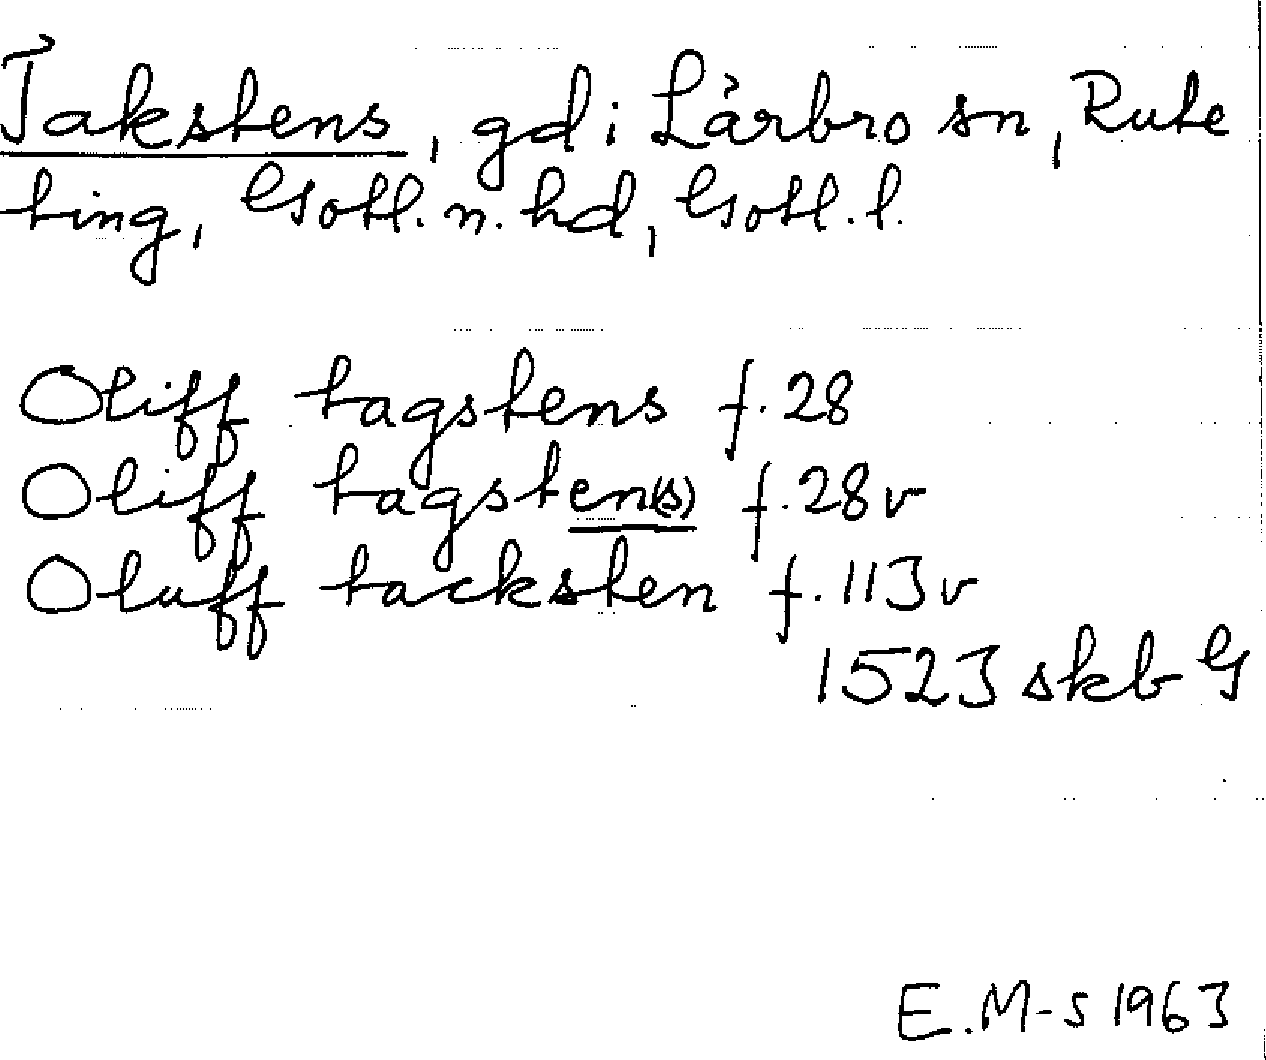 Takstens, gd i Lärbro sn, Rute
ting, Gotl. n. hd, Gotl. l.
Oliff tagstens f. 28
Oliff tagsten(s) f. 28v
Oluff tacksten f. 113v
1523 skb G
E.M-s 1963